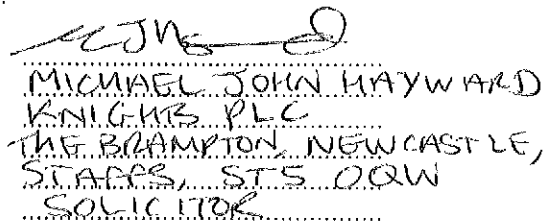 MICHAEL JOHN HAYWARD
KNIGHTS PLC
THE BRAMPTON, NEWCASTLE,
STAFFS, ST5 0QW
SOLICITOR